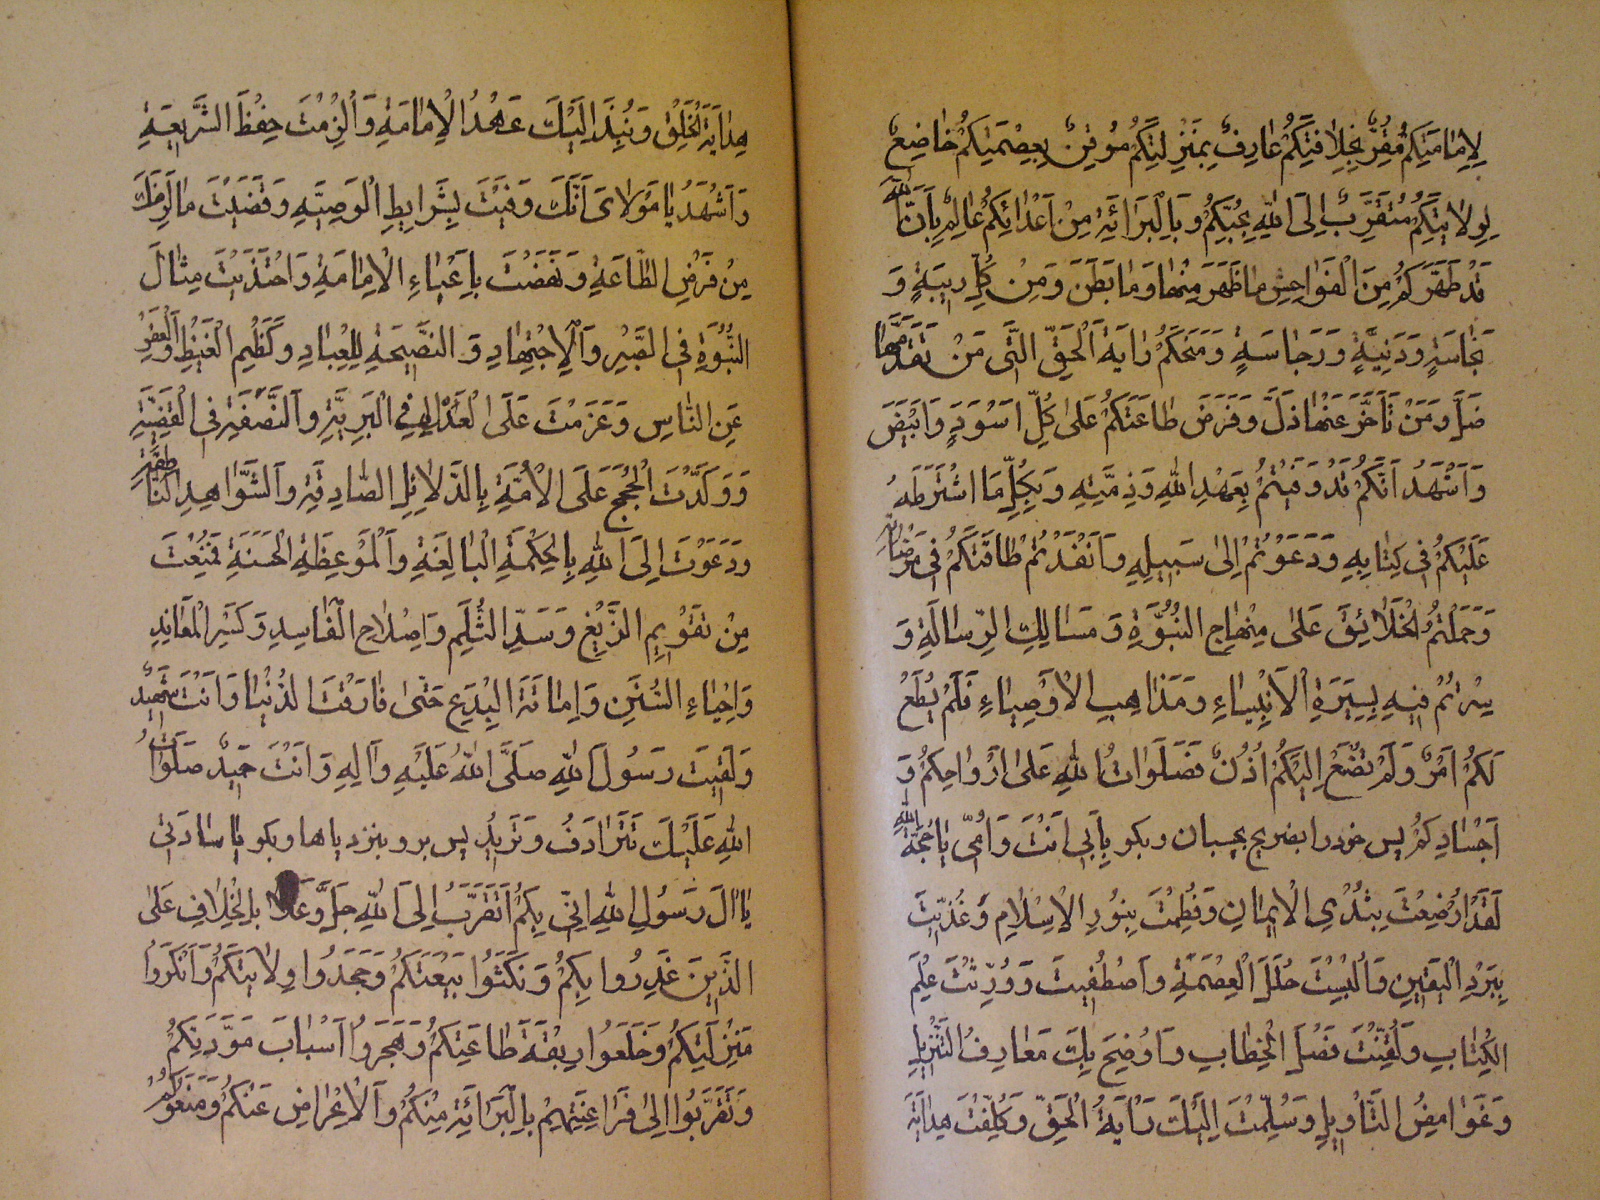 لِاِمَامَتِكُمْ مُقِرٌّ بِخِلَافَتِكُمْ عَارِفٌ بِمَنْزِلَتِكُمْ مُوقِنٌ بِعِصْمَتِكُمْ خَاضِعٌ
لِوِلَايَتِكُمْ مُتَقَرِّبٌ اِلَى اللّٰهِ بِحُبِّكُمْ وَبِالْبَرَائَةِ مِنْ اَعْدَائِكُمْ عَالِمٌ بِاَنَّ اللّٰهَ
قَدْ طَهَّرَكُمْ مِنَ الْفَوَاحِشِ مَا ظَهَرَ مِنْهَا وَمَا بَطَنَ وَمِنْ كُلِّ رِيبَةٍ وَ
نَجَاسَةٍ وَدَنِيَّةٍ وَرَجَاسَةٍ وَمَنَحَكُمْ رَايَةَ الْحَقِّ الَّتِى مَنْ تَقَدَّمَهَا
ضَلَّ وَمَنْ تَاَخَّرَ عَنْهَا ذَلَّ وَفَرَضَ طَاعَتَكُمْ عَلَى كُلِّ اَسْوَدٍ وَاَبْيَضَ
وَاَشْهَدُ اَنَّكُمْ قَدْ وَفَيْتُمْ بِعَهْدِ اللّٰهِ وَذِمَّتِهِ وَبِكُلِّ مَا اشْتَرَطَهُ
عَلَيْكُمْ فِى كِتَابِهِ وَدَعَوْتُمْ اِلَى سَبِيلِهِ وَاَنْفَدْتُمْ طَاقَتَكُمْ فِى مَرْضَاتِهِ
وَحَمَلْتُمُ الْخَلَائِقَ عَلَى مِنْهَاجِ النُّبُوَّةِ وَمَسَالِكِ الرِّسَالَةِ وَ
سِرْتُمْ فِيهِ بِسِيرَةِ الْاَنْبِيَاءِ وَمَذَاهِبِ الْاَوْصِيَاءِ فَلَمْ يُطَعْ
لَكُمْ اَمْرٌ وَلَمْ تُصْغَ اِلَيْكُمْ اُذُنٌ فَصَلَوَاتُ اللّٰهِ عَلَى اَرْوَاحِكُمْ وَ
اَجْسَادِكُمْ پس خود را بضريح بچسبان وبكو بِاَبِى اَنْتَ وَاُمِّى يَا حُجَّةَ اللّٰهِ
لَقَدْ اُرْضِعْتَ بِثَدْىِ الْاِيمَانِ وَفُطِمْتَ بِنُورِ الْاِسْلَامِ وَغُذِّيتَ
بِبَرْدِ الْيَقِينِ وَاُلْبِسْتَ حُلَلَ الْعِصْمَةِ وَاصْطُفِيتَ وَوُرِّثْتَ عِلْمَ
الْكِتَابِ وَلُقِّنْتَ فَصْلَ الْخِطَابِ وَاُوضِحَ بِكَ مَعَارِفُ التَّنْزِيلِ
وَغَوَامِضُ التَّاْوِيلِ وَسُلِّمَتْ اِلَيْكَ رَايَةُ الْحَقِّ وَكُلِّفْتَ هِدَايَةَ
هِدَايَةَ الْخَلْقِ وَنُبِذَ اِلَيْكَ عَهْدُ الْاِمَامَةِ وَاُلْزِمْتَ حِفْظَ الشَّرِيعَةِ
وَاَشْهَدُ يَا مَوْلَاىَ اَنَّكَ وَفَيْتَ بِشَرَايِطِ الْوَصِيَّةِ وَقَضَيْتَ مَا لَزِمَكَ
مِنْ فَرْضِ الطَّاعَةِ وَنَهَضْتَ بِاَعْبَاءِ الْاِمَامَةِ وَاحْتَذَيْتَ مِثَالَ
النُّبُوَّةِ فِى الصَّبْرِ وَالْاِجْتِهَادِ وَالنَّصِيحَةِ لِلْعِبَادِ وَكَظْمِ الْغَيْظِ وَالْعَفْوِ
عَنِ النَّاسِ وَعَزَمْتَ عَلَى الْعَدْلِ فِى الْبَرِيَّةِ وَالنَّصَفَةِ فِى الْقَضِيَّةِ
وَوَكَّدْتَ الْحُجَجَ عَلَى الْاُمَّةِ بِالدَّلَائِلِ الصَّادِقَةِ وَالشَّوَاهِدِ النَّاطِقَةِ
وَدَعَوْتَ اِلَى اللّٰهِ بِالْحِكْمَةِ الْبَالِغَةِ وَالْمَوْعِظَةِ الْحَسَنَةِ فَمُنِعْتَ
مِنْ تَقْوِيمِ الزَّيْغِ وَسَدِّ الثُّلَمِ وَاِصْلَاحِ الْفَاسِدِ وَكَسْرِ الْمُعَانِدِ
وَاِحْيَاءِ السُّنَنِ وَاِمَاتَةِ الْبِدَعِ حَتَّى فَارَقْتَ الدُّنْيَا وَاَنْتَ شَهِيدٌ
وَلَقِيتَ رَسُولَ اللّٰهِ صَلَّى اللّٰهُ عَلَيْهِ وَاٰلِهِ وَاَنْتَ حَمِيدٌ صَلَوَاتُ
اللّٰهِ عَلَيْكَ تَتَرَادَفُ وَتَزِيدُ پس برو بنزد پاها وبكو يَا سَادَتِى
يَا اٰلَ رَسُولِ اللّٰهِ اِنِّى بِكُمْ اَتَقَرَّبُ اِلَى اللّٰهِ جَلَّ وَعَلَا بِالْخِلَافِ عَلَى
الَّذِينَ غَدَرُوا بِكُمْ وَنَكَثُوا بَيْعَتَكُمْ وَجَحَدُوا وِلَايَتَكُمْ وَاَنْكَرُوا
مَنْزِلَتَكُمْ وَخَلَعُوا رِبْقَةَ طَاعَتِكُمْ وَهَجَرُوا اَسْبَابَ مَوَدَّتِكُمْ
وَتَقَرَّبُوا اِلَى فَرَاعِنَتِهِمْ بِالْبَرَائَةِ مِنْكُمْ وَالْاِعْرَاضِ عَنْكُمْ وَمَنَعُوكُمْ